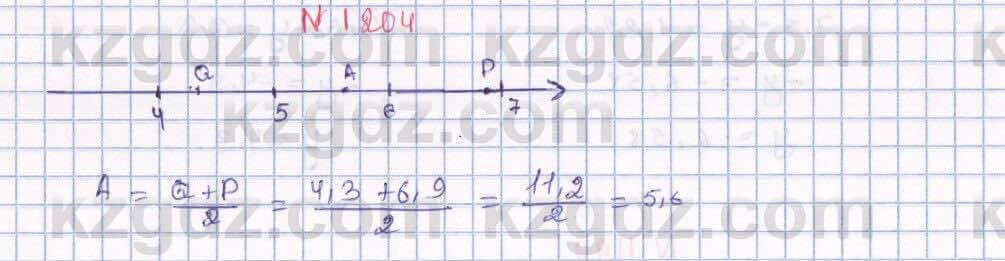 N 1204
kzgdz.com kzgdz.com
Q A P
4 5 6 7
kzgdz.com
A = Q+P/2 = 4,3+6,9/2 = 11,2/2 = 5,6
kzgdz.com kzgdz.com